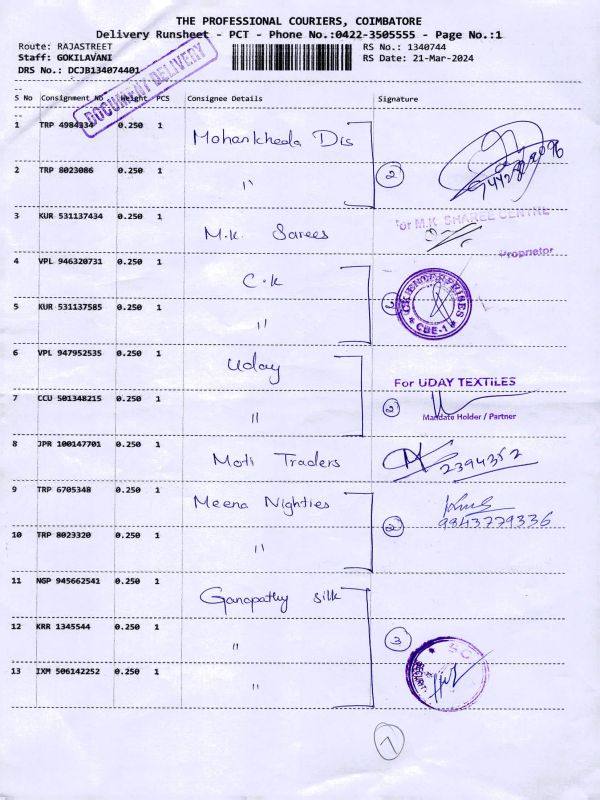 THE PROFESSIONAL COURIERS, COIMBATORE
Delivery Runsheet - PCT - Phone No.:0422-3505555 - Page No.:1
Route: RAJASTREET RS No.: 1340744
Staff: GOKILAVANI RS Date: 21-Mar-2024
DRS No.: DCJB134074401
DOCUMENT DELIVERY
S No Consignment No. Weight PCS Consignee Details Signature
1 TRP 4984334 0.250 1 Mohankheda Dis
2 TRP 8023086 0.250 1 " 2
3 KUR 531137434 0.250 1 M.K. Sarees
For M.K SHAREE CENTRE
Proprietor
4 VPL 946320731 0.250 1 C.K
5 KUR 531137585 0.250 1 "
CK ENTERPRISES
CBE-1
6 VPL 947952535 0.250 1 Uday
For UDAY TEXTILES
7 CCU 501348215 0.250 1 " 2
Mandate Holder / Partner
8 JPR 100147701 0.250 1 Moti Traders 2394352
9 TRP 6705348 0.250 1 Meena Nighties
9843779336
10 TRP 8023320 0.250 1 " 2
11 NGP 945662541 0.250 1 Ganapathy silk
12 KRR 1345544 0.250 1 " 3
13 IXM 506142252 0.250 1 "
7